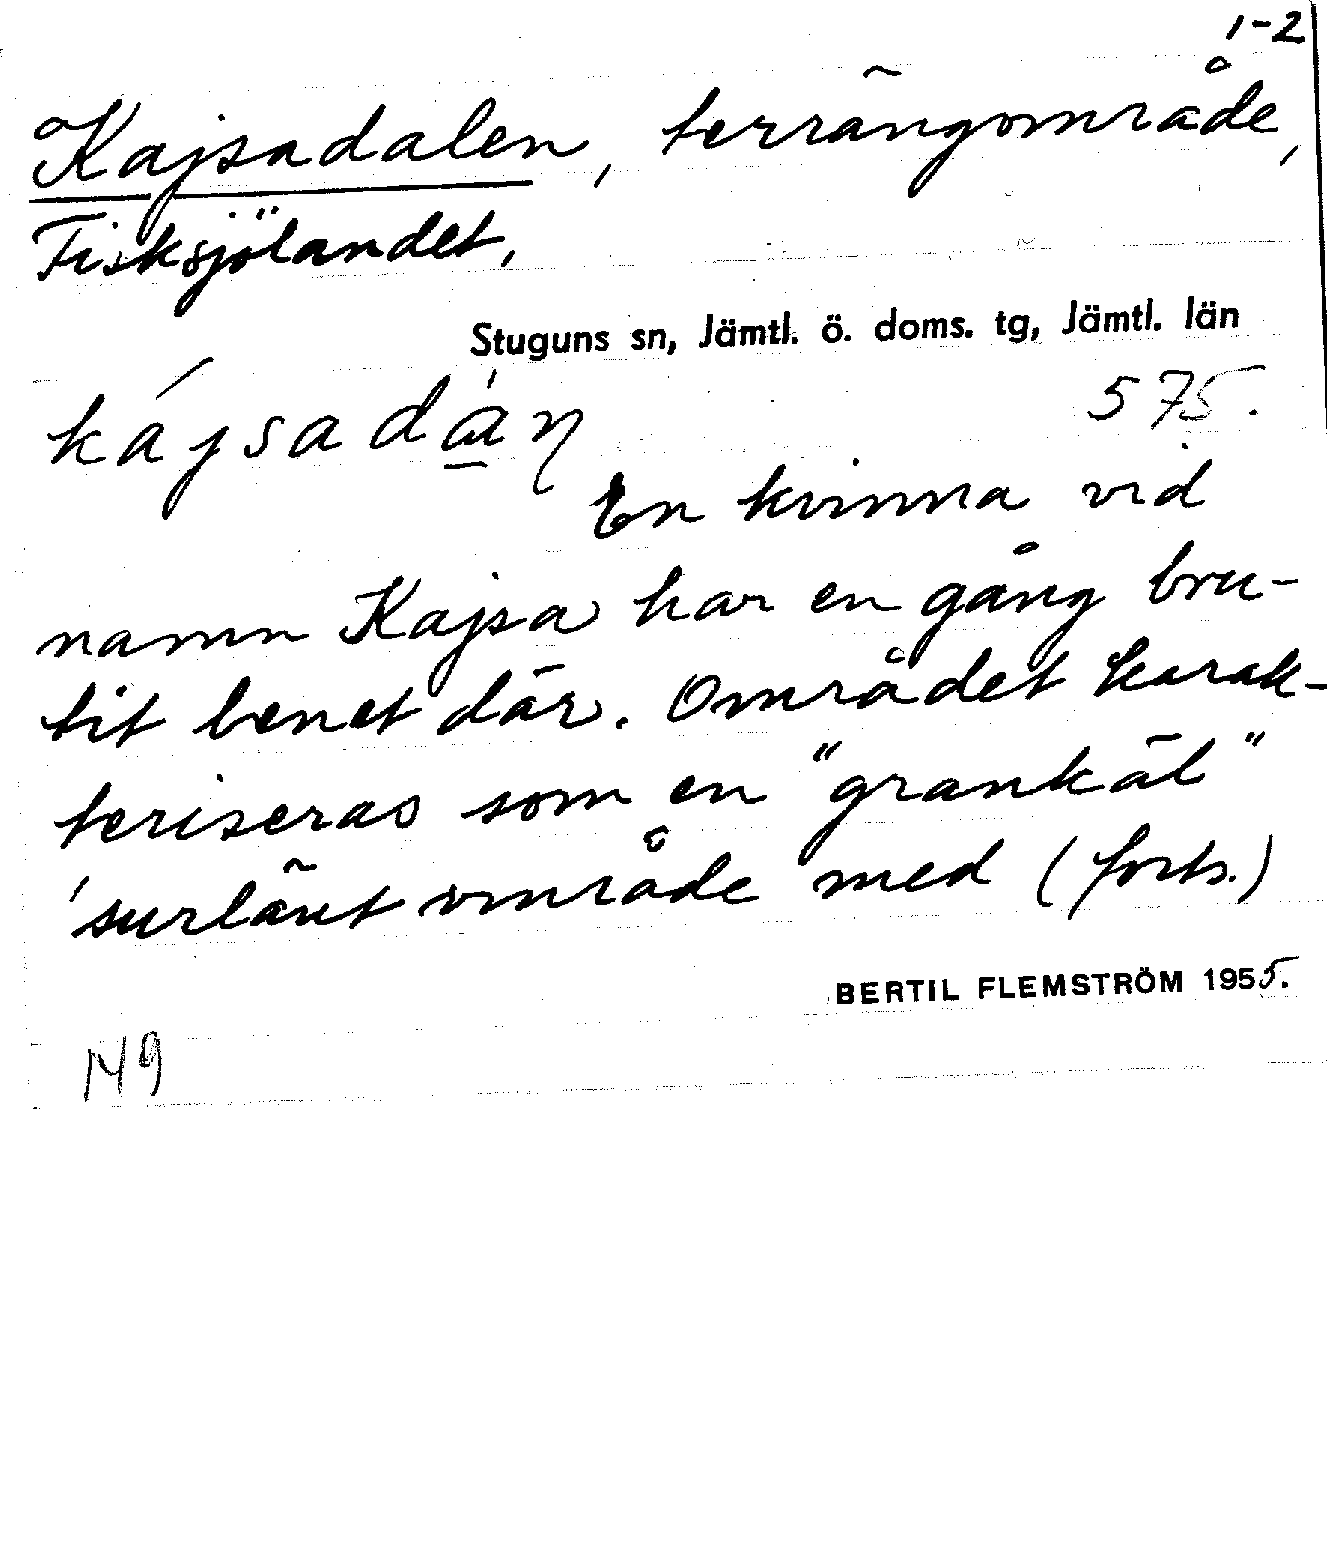 1-2
Kajsadalen, terrängområde,
Fisksjölandet,
Stuguns sn, Jämtl. ö. doms. tg, Jämtl. län
kájsadàn̥
575.
En kvinna vid
namn Kajsa har en gång bru-
tit benet där. Området karak-
teriseras som en "grankäl"
'surlänt område' med (forts.)
BERTIL FLEMSTRÖM 1955.
149